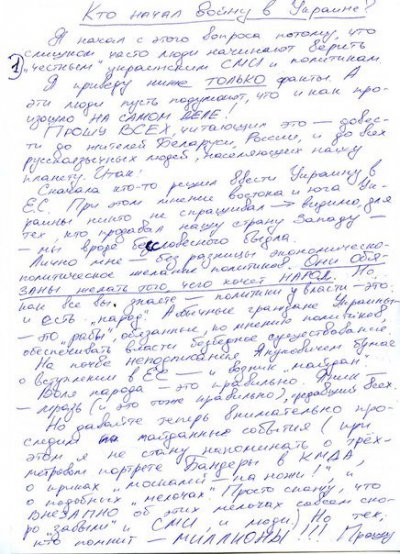 Кто начал войну в Украине?
Я начал с этого вопроса потому, что
слишком часто люди начинают верить
"честным" украинским СМИ и политикам
1)
Я приведу ниже ТОЛЬКО факты. А
эти люди пусть подумают, что и как про-
изошло НА САМОМ ДЕЛЕ!
Прошу ВСЕХ, читающих это — довес-
ти до жителей Беларуси, России, и до всех
русскоязычных людей, населяющих нашу
планету. Итак:
Сначала кто-то решил ввести Украину в
Е.С. При этом мнение востока и юга Ук-
раины никто не спрашивал → видимо, для
тех, кто продавал нашу страну Западу —
— мы вроде бессловесного быдла.
Лично мне — без разницы экономическо-
политическое желание политиков. Они ОБЯ-
ЗАНЫ желать того, чего хочет НАРОД. Но,
как все вы знаете — политики у власти — это
и есть "народ". А обычные граждане Украины
— это "рабы", обязанные, по мнению политиков
обеспечивать власти безбедное существование.
На почве неподписания Януковичем бумаг
о вступлении в ЕС — и возник "майдан".
Воля народа — это правильно. Яник —
— мразь (и это тоже правильно), предавший всех.
Но давайте теперь внимательно про-
следим майданные события (при
этом я не стану напоминать о трёх-
метровом портрете Бандеры в КМДА,
о криках "москалей — на ножи!", и
о подобных "мелочах". Просто скажу, что
ВНЕЗАПНО об этих мелочах совсем ско-
ро забыли и СМИ, и люди.) Но тех,
кто помнит — МИЛЛИОНЫ!!! Прошу